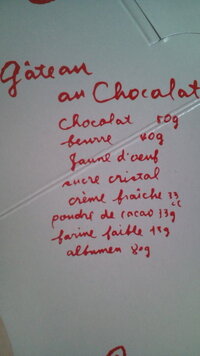 Gâteau
au Chocolat
chocolat 50g
beurre 40g
jaune d'oeuf
sucre cristal
crème fraîche 33 cc
poudre de cacao 33g
farine faible 18g
albumen 80g